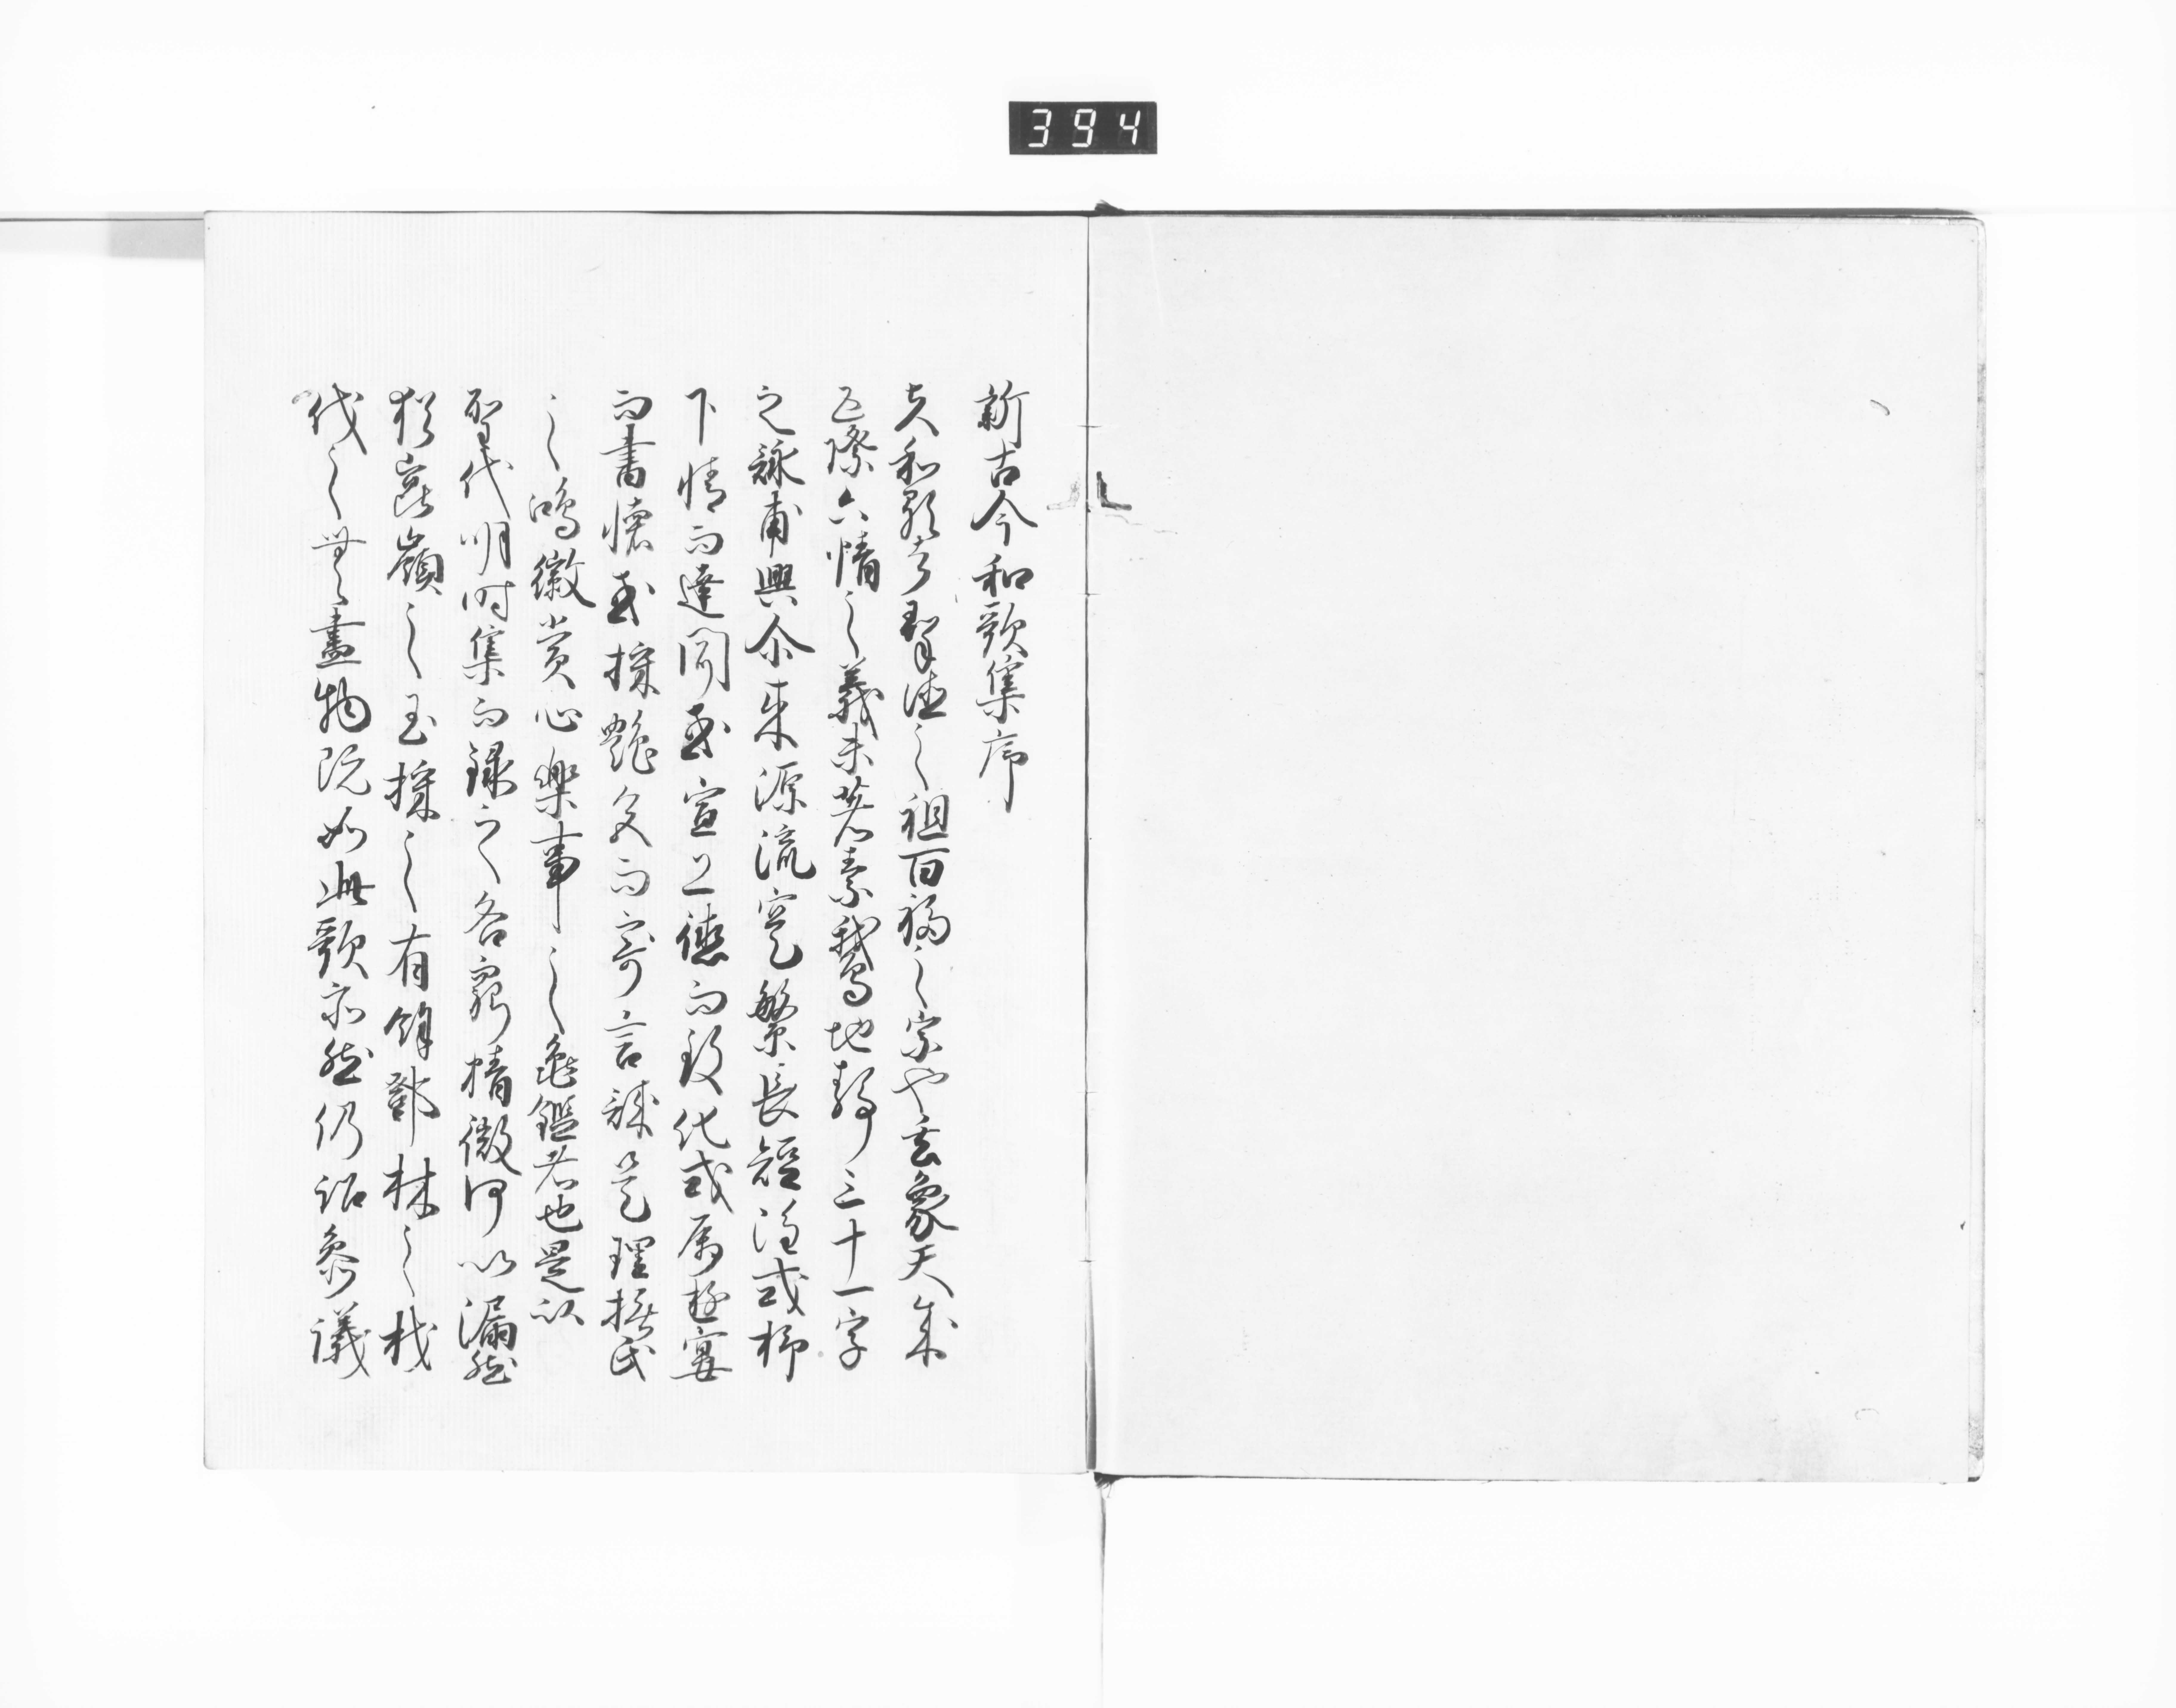 394
新古今和歌集序
夫和歌者群徳之祖百福之宗也玄象天成
五際六情之義未著素鵞地静三十一字
之詠甫興尓来源流寔繁長短雖或抒
下情而達聞或宣上徳而致化或属遊宴
而書懐或採艶色而寄言誠是理世撫民
之鴻徽賞心楽事之亀鑑者也是以
聖代明時集而録之各窮精微何以漏脱
猶崑嶺之玉採之有餘鄧林之材
伐之無盡物既如此歌亦然仍詔参議